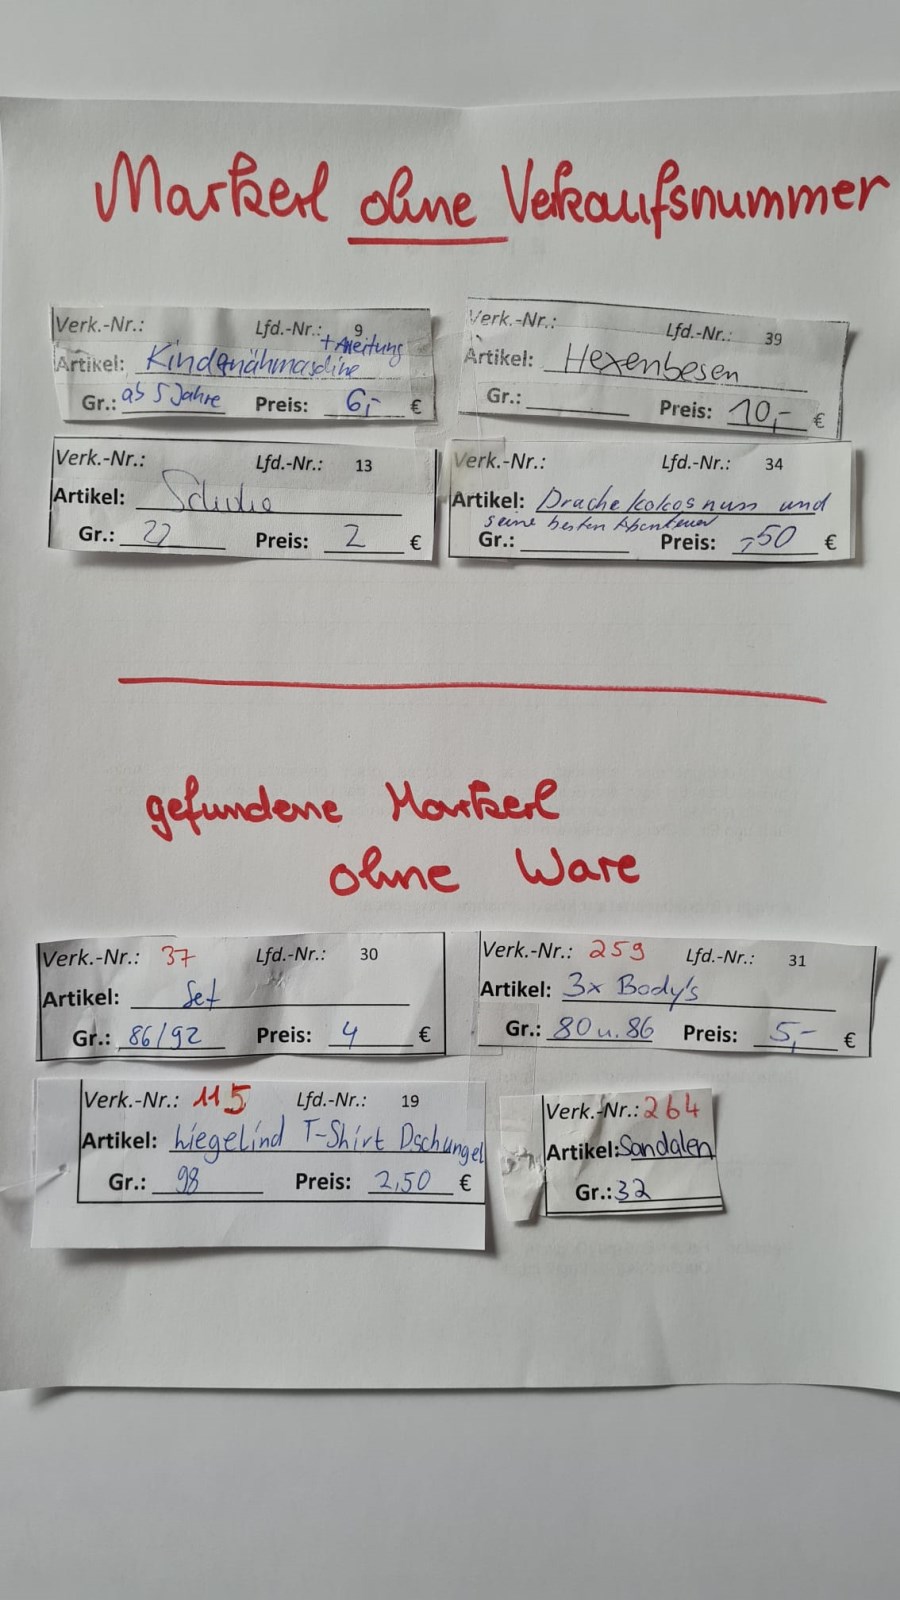 Markerl ohne Verkaufsnummer
Verk.-Nr.: Lfd.-Nr.: 9
+ Aneitung
Artikel: Kindernähmaschine
Gr.: ab 5 Jahre Preis: 6,- €
Verk.-Nr.: Lfd.-Nr.: 39
Artikel: Hexenbesen
Gr.: Preis: 10,- €
Verk.-Nr.: Lfd.-Nr.: 13
Artikel: Schuhe
Gr.: 22 Preis: 2 €
Verk.-Nr.: Lfd.-Nr.: 34
Artikel: Drache kokosnuss und
seine besten Abenteuer
Gr.: Preis: -,50 €
gefundene Markerl
ohne Ware
Verk.-Nr.: 37 Lfd.-Nr.: 30
Artikel: Set
Gr.: 86/92 Preis: 4 €
Verk.-Nr.: 259 Lfd.-Nr.: 31
Artikel: 3x Body's
Gr.: 80 u. 86 Preis: 5,- €
Verk.-Nr.: 115 Lfd.-Nr.: 19
Artikel: Liegelind T-Shirt Dschungel
Gr.: 98 Preis: 2,50 €
Verk.-Nr.: 264
Artikel: Sandalen
Gr.: 32